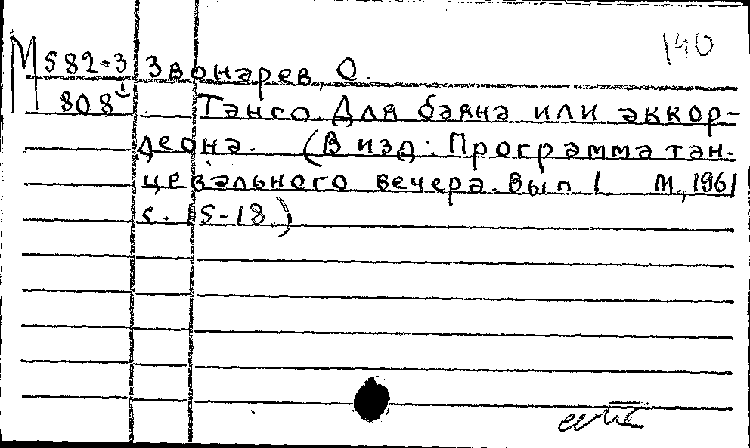 140
М 582-3 Звонарев, О.
808 Танго. Для баяна или аккор-
деона. (В изд: Программа тан-
цевального вечера. Вып 1 М., 1961
с. 15-18)